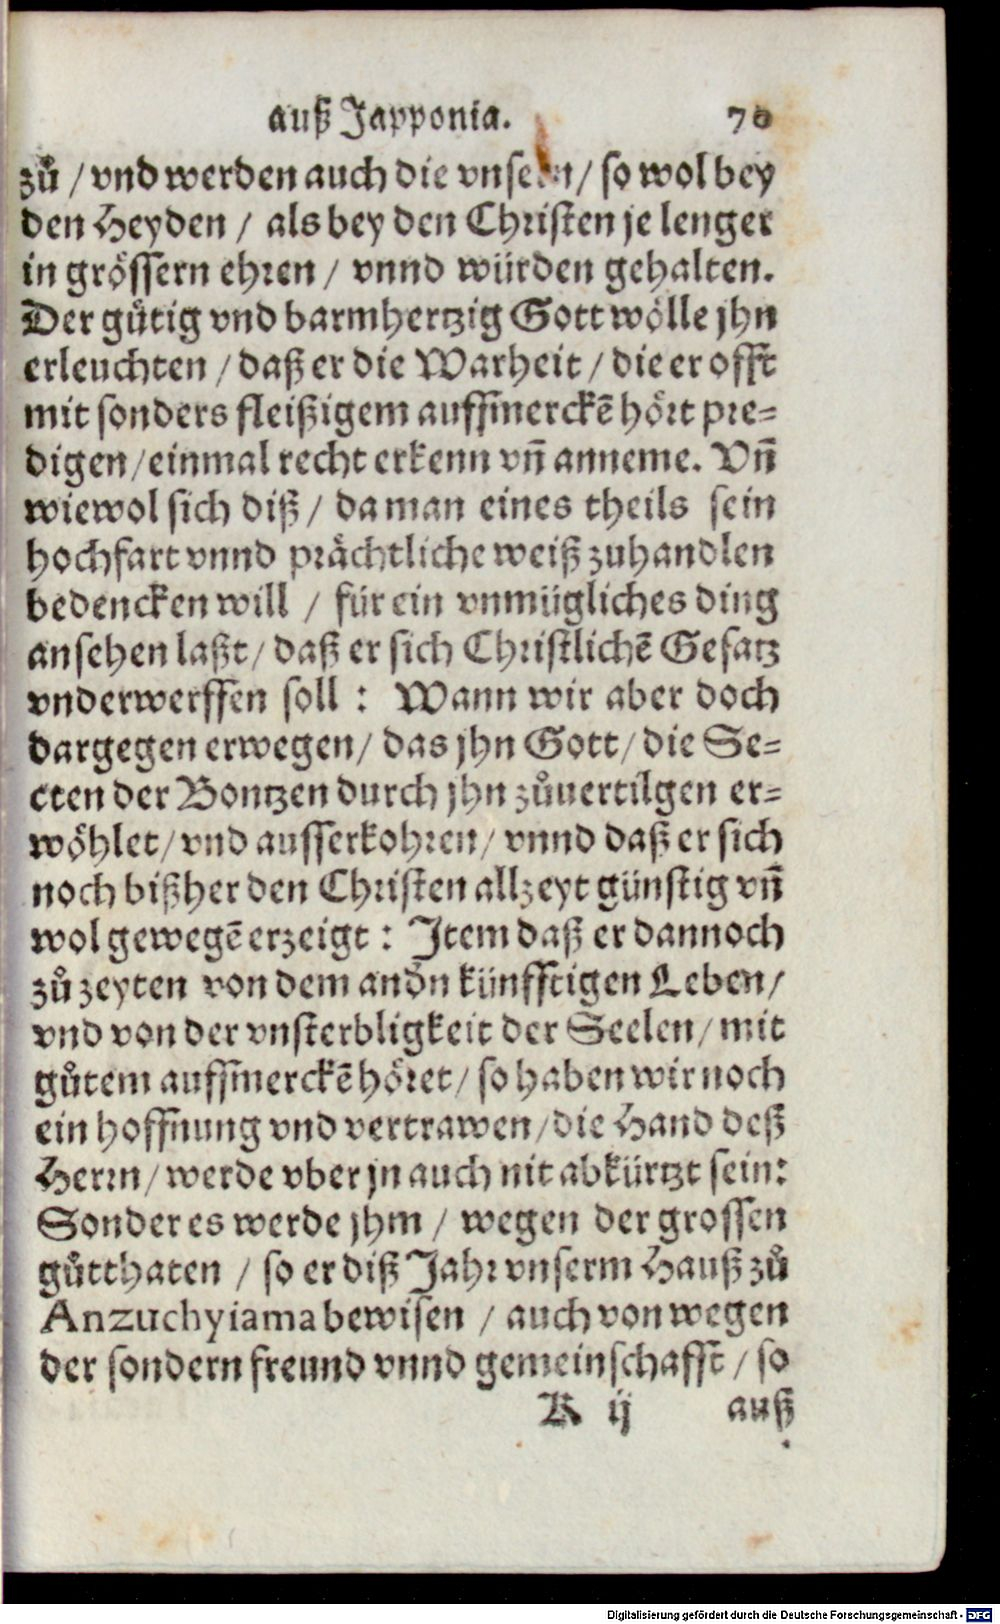 auß Japponia. 70
zů / vnd werden auch die vnsern / so wol bey
den Heyden / als bey den Christen je lenger
in grössern ehren / vnnd würden gehalten.
Der gůtig vnd barmhertzig Gott wölle jhn
erleuchten / daß er die Warheit / die er offt
mit sonders fleißigem auffmerckẽ hört pre-
digen / einmal recht erkenn vñ anneme. Vñ
wiewol sich diß / da man eines theils sein
hochfart vnnd prächtliche weiß zuhandlen
bedencken will / für ein vnmügliches ding
ansehen laßt / daß er sich Christlichẽ Gesatz
vnderwerffen soll : Wann wir aber doch
dargegen erwegen / das jhn Gott / die Se-
cten der Bontzen durch jhn zůuertilgen er-
wöhlet / vnd ausserkohren / vnnd daß er sich
noch bißher den Christen allzeyt günstig vñ
wol gewegẽ erzeigt : Item daß er dannoch
zů zeyten von dem andn künfftigen Leben /
vnd von der vnsterbligkeit der Seelen / mit
gůtem auffmerckẽ höret / so haben wir noch
ein hoffnung vnd vertrawen / die Hand deß
Herrn / werde vber jn auch nit abkürtzt sein:
Sonder es werde jhm / wegen der grossen
gůtthaten / so er diß Jahr vnserm Hauß zů
Anzuchyiama bewisen / auch von wegen
der sondern freund vnnd gemeinschafft / so
K ij auß
Digitalisierung gefördert durch die Deutsche Forschungsgemeinschaft - DFG